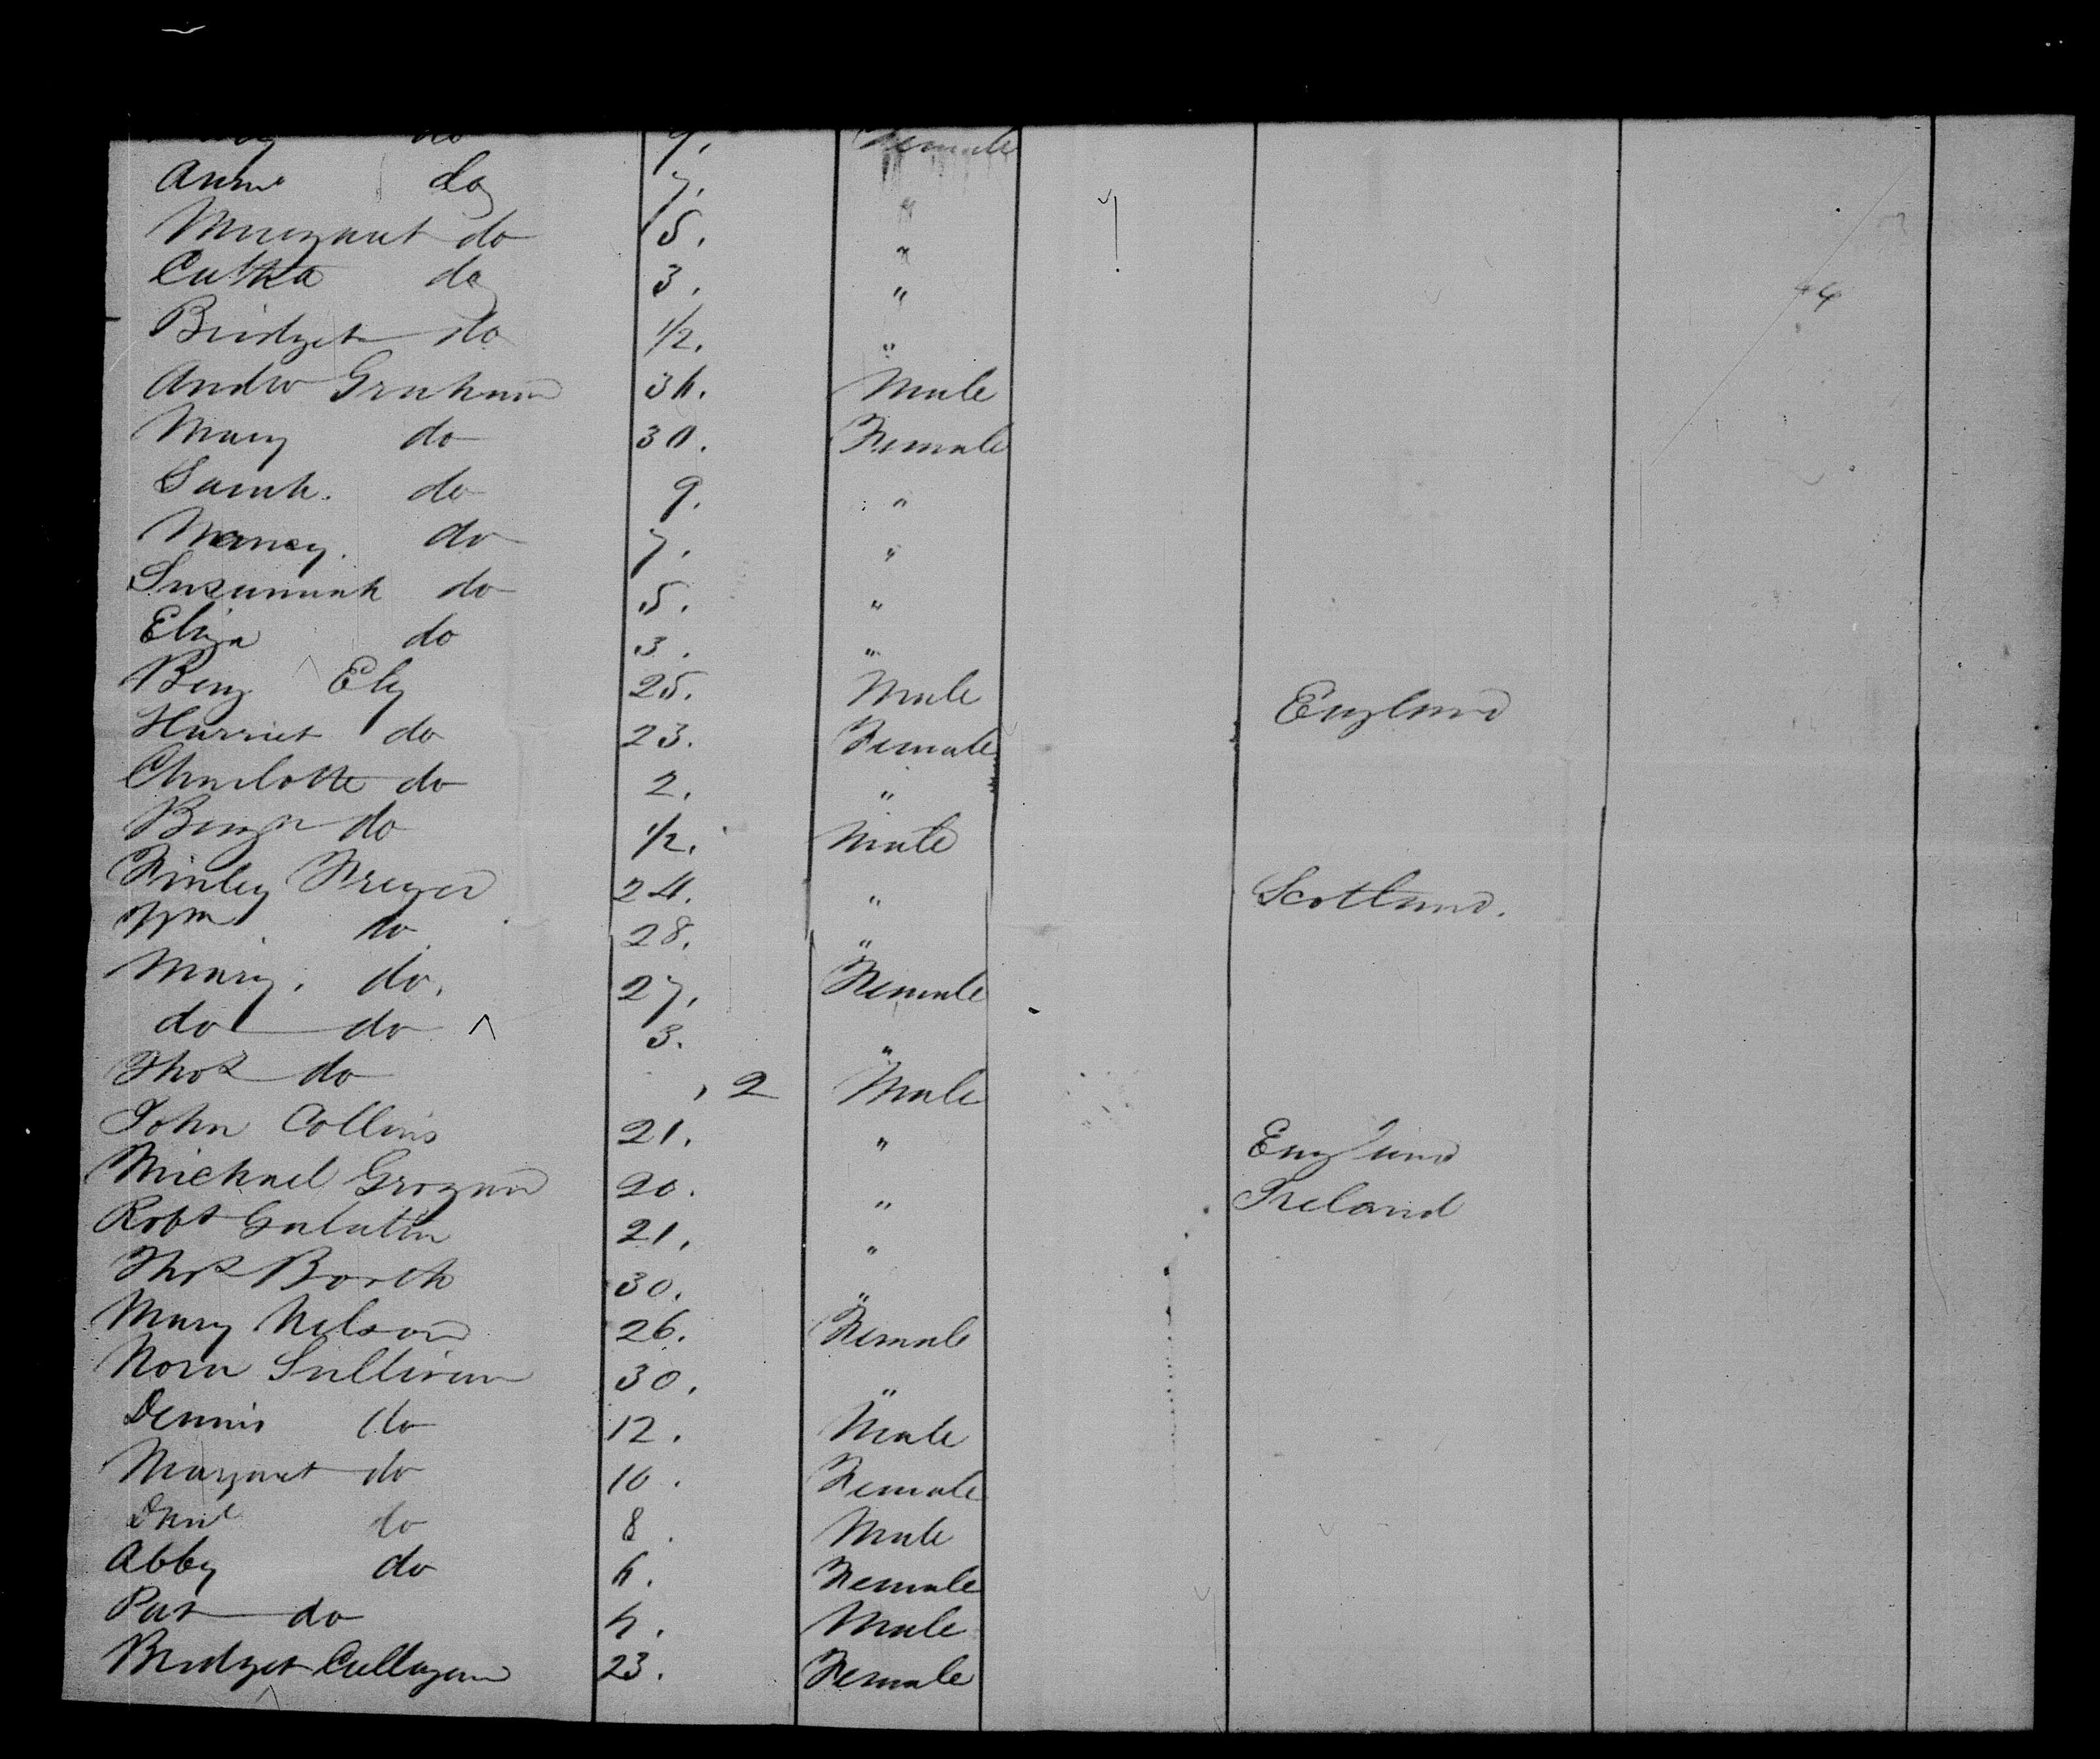 do 9. Female
Anne do 7. "
Margaret do 5. "
Cathe do 3. "
Bridget do 1/2. "
Andw Graham 36. Male
Mary do 30. Female
Sarah. do 9. "
Nancy. do 7. "
Susannah do 5. "
Eliza do 3. "
Benj Ely 25. Male England
Harriet do 23. Female
Charlotte do 2. "
Benjn do 1/2. Male
Finley Freyer 24. " Scotland.
Wm do 28. "
Mary. do. 27. Female
do do 3. "
Thos do , 2 Male
John Collins 21. " England
Michael Grogan 20. " Ireland
Robt Galatin 21. "
Thos Booth 30. "
Mary Nelson 26. Female
Nora Sullivan 30. "
Dennis do 12. Male
Margaret do 10. Female
Danl do 8. Male
Abby do 6. Female
Pat do 4. Male
Bridget Callagan 23. Female